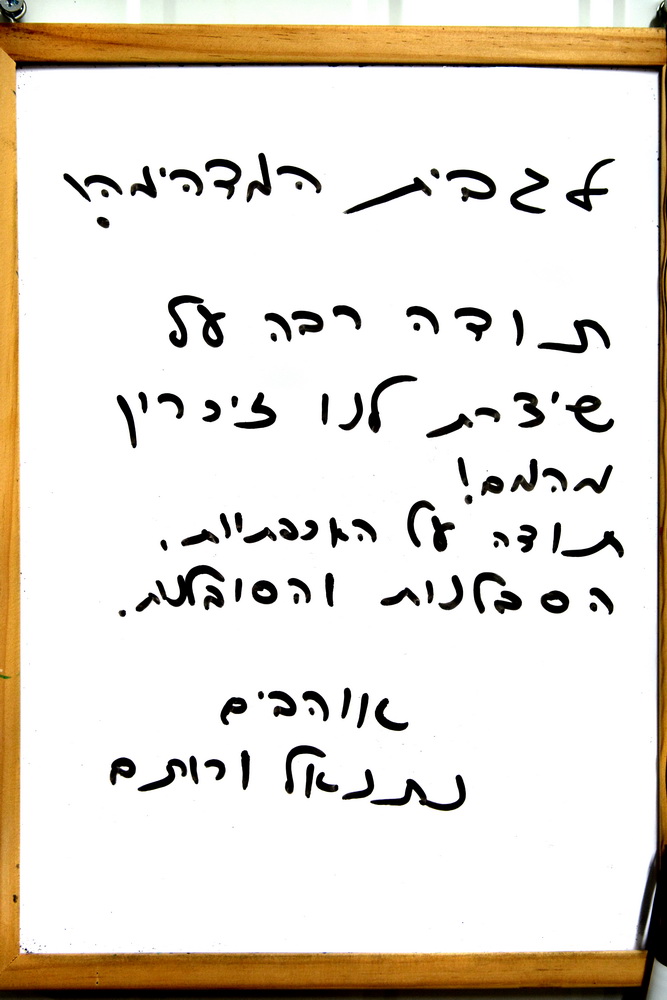 לגבית המדהימה!
תודה רבה על
שיצרת לנו זיכרון
מהמם!
תודה על האכפתיות,
הסבלנות והסובלנות.
אווהבים
נתנאל ורותם